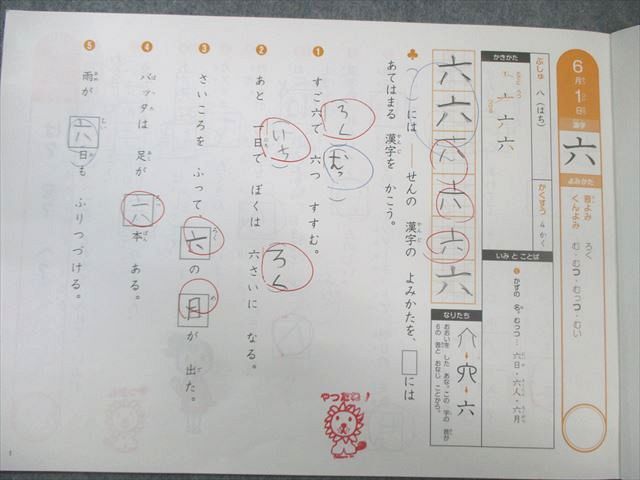 6月1日
漢字
六
よみかた
音よみ ろく
くんよみ む・むつ・むっつ・むい
ぶしゅ 八(はち)
かくすう 4かく
かきかた
六 六
いみ と ことば
❶ かずの 名。むっつ… 六日・六人・六月
なりたち
六
六 六 六 六 六 六
♣( )には ──せんの 漢字の よみかたを、□には
あてはまる 漢字を かこう。
❶ すご六で 六つ すすむ。
ろく
むっ
❷ あと 一日で ぼくは 六さいに なる。
いち
ろく
❸ さいころを ふって、六の 目が 出た。
❹ バッタは 足が 六本 ある。
❺ 雨が 六日も ふりつづける。
やったね!